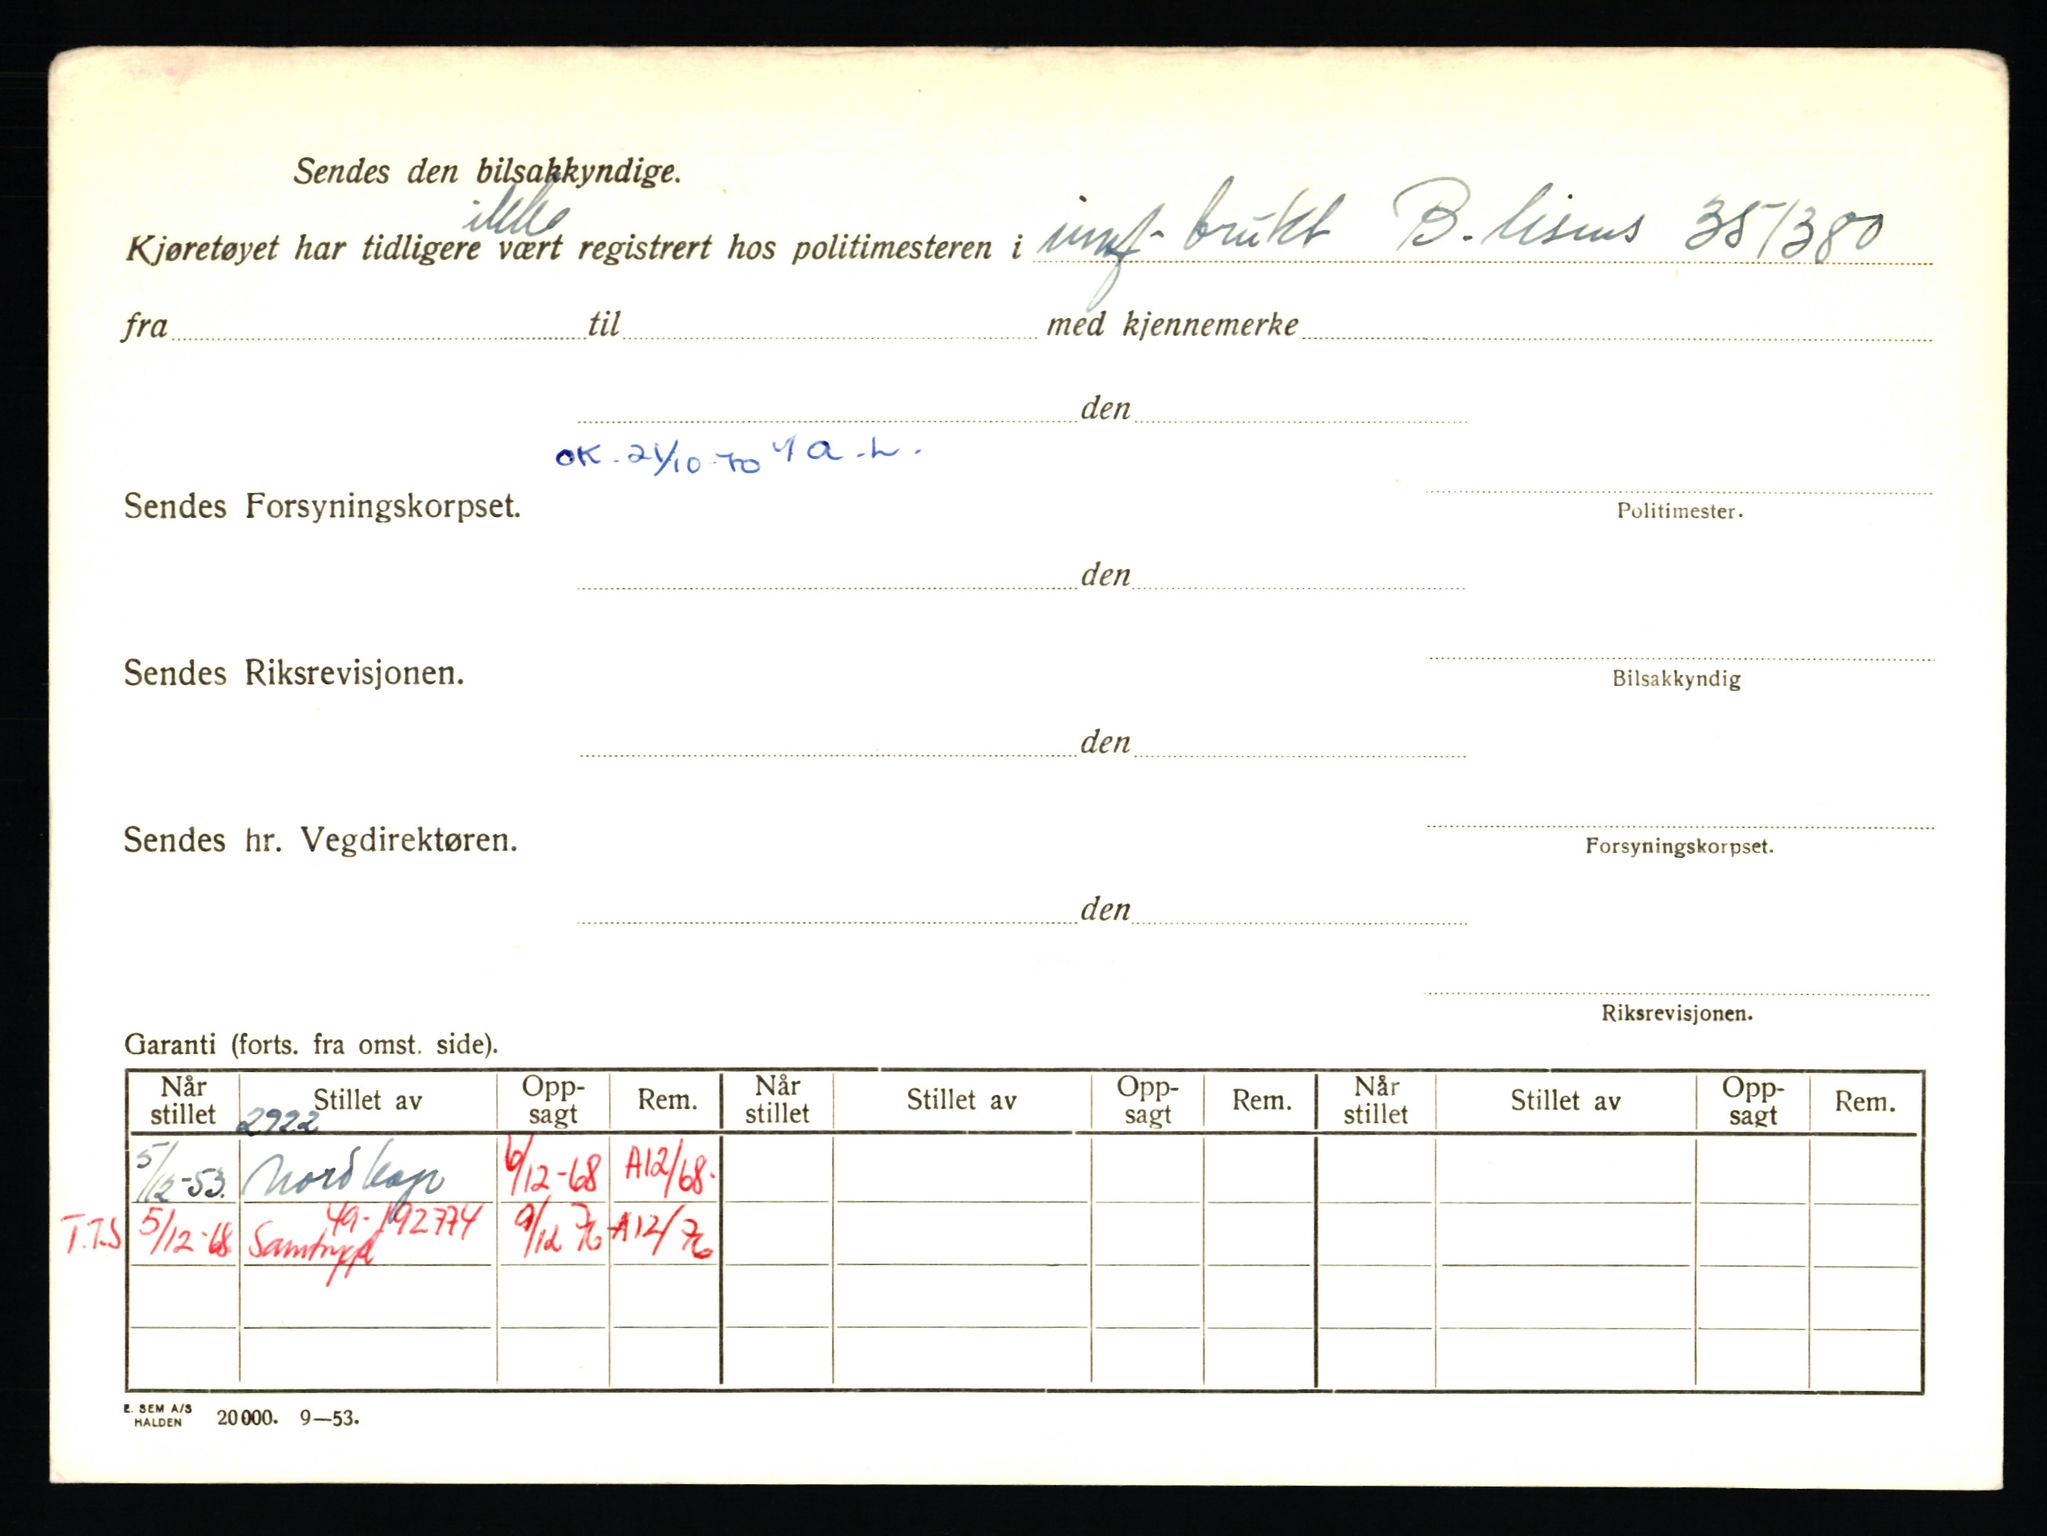 Sendes den bilsakkyndige.
ikke
Kjøretøyet har tidligere vært registrert hos politimesteren i imf. brukt B. lisens 35/380
fra til med kjennemerke
den
OK. 21/10-70 A.L.
Sendes Forsyningskorpset.
Politimester.
den
Sendes Riksrevisjonen.
Bilsakkyndig
den
Sendes hr. Vegdirektøren.
Forsyningskorpset.
den
Riksrevisjonen.
Garanti (forts. fra omst. side).
Når stillet Stillet av Opp-sagt Rem. Når stillet Stillet av Opp-sagt Rem. Når stillet Stillet av Opp-sagt Rem.
2922
5/12-53. Nordkapp 6/12-68 A12/68.
T.T.S 5/12-68. Samtrygd 49-192774 9/12 76 A12/76
E. SEM A/S
HALDEN 20000. 9—53.